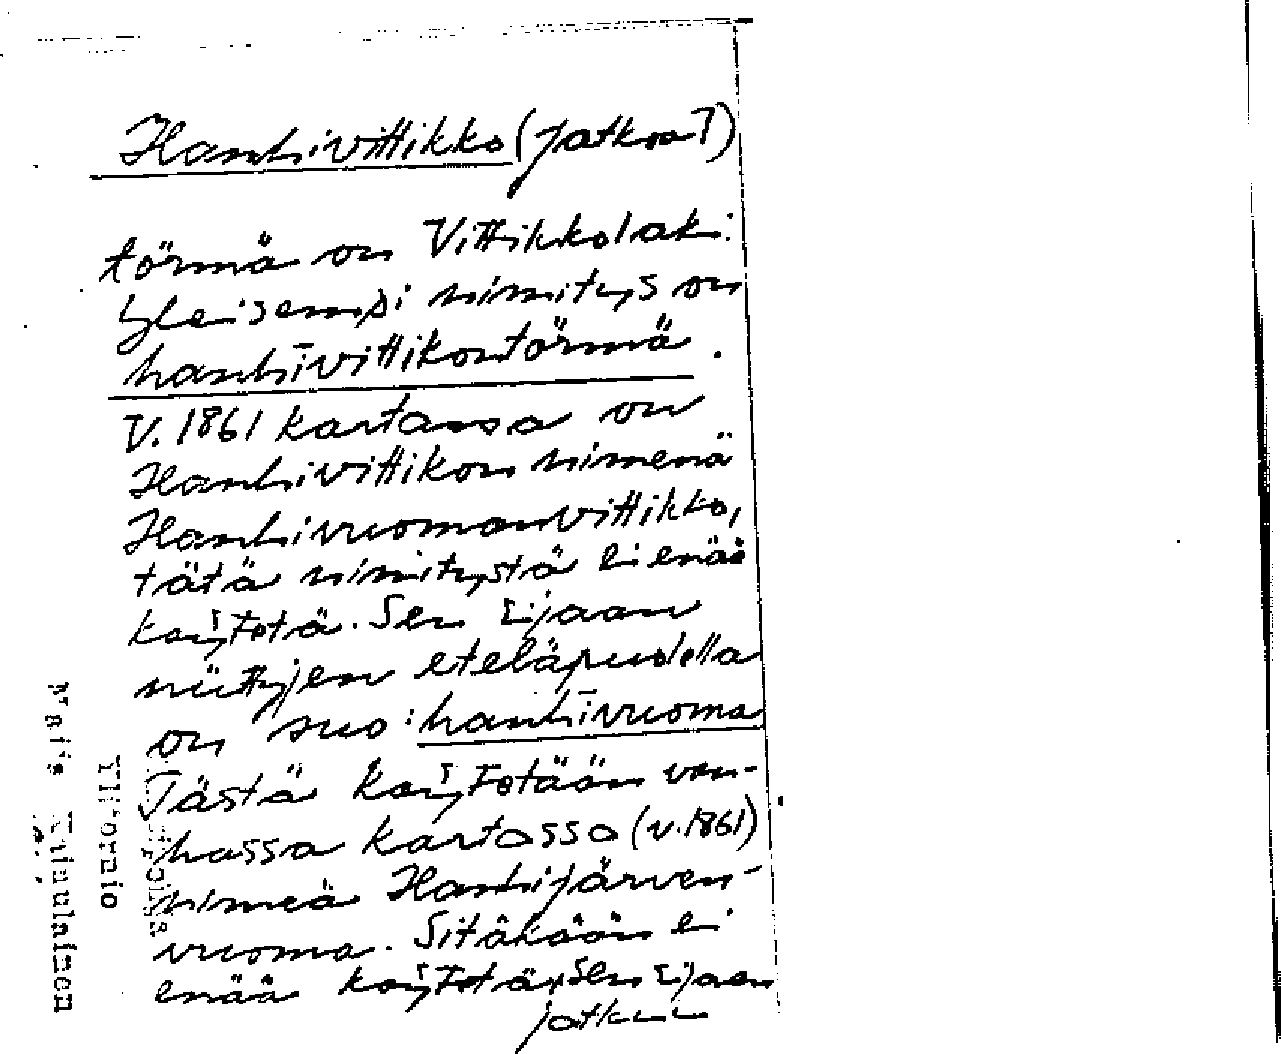 Hanhivittikko (jatkoa I)
törmä on Vittikkolaki.
Yleisempi nimitys on
hanhīvittikontörmä.
V. 1861 kartassa on
Hanhivittikon nimenä
Hanhivuomanvittikko,
tätä nimitystä ei enää
käytetä. Sen sijaan
niittyjen eteläpuolella
on suo: hanhīvuoma
Tästä käytetään van-
hassa kartassa (v. 1861)
nimeä Hanhijärven-
vuoma. Sitäkään ei
enää käytetä, sen sijaan
jatkuu
Ylitornio